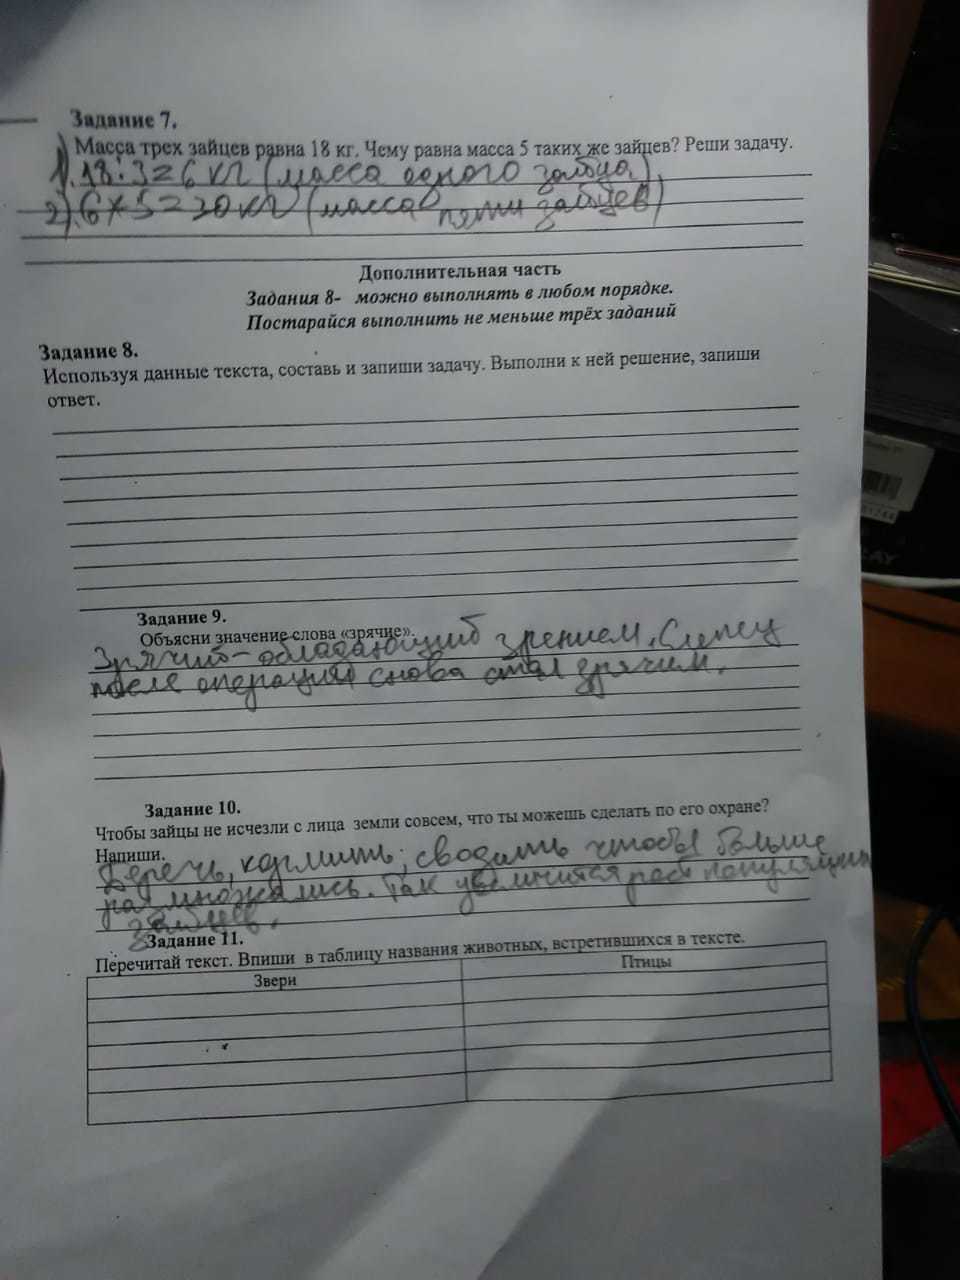 Задание 7.
Масса трех зайцев равна 18 кг. Чему равна масса 5 таких же зайцев? Реши задачу.
1). 18:3=6 кг (масса одного зайца.)
2). 6×5=30 кг (масса пяти зайцев)
Дополнительная часть
Задания 8- можно выполнять в любом порядке.
Постарайся выполнить не меньше трёх заданий
Задание 8.
Используя данные текста, составь и запиши задачу. Выполни к ней решение, запиши
ответ.
Задание 9.
Объясни значение слова «зрячие».
Зрячий - обладающий зрением. Слепец
после операции снова стал зрячим.
Задание 10.
Чтобы зайцы не исчезли с лица земли совсем, что ты можешь сделать по его охране?
Напиши.
Беречь, кормить, сводить чтобы больше
размножались. Так увеличится рост популяции
зайцев.
Задание 11.
Перечитай текст. Впиши в таблицу названия животных, встретившихся в тексте.
Звери Птицы